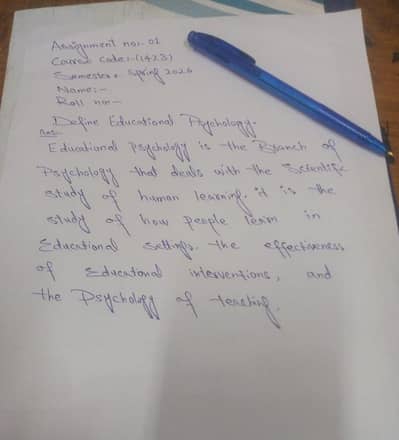 Assignment no:- 01
Course Code:- (1423)
Semester: Spring 2026
Name:-
Roll no:-
Define Educational Psychology.
Ans:-
Educational Psychology is the Branch of
Psychology that deals with the Scientific
study of human learning. it is the
study of how people learn in
Educational Settings. the effectiveness
of Educational interventions, and
the Psychology of teaching.